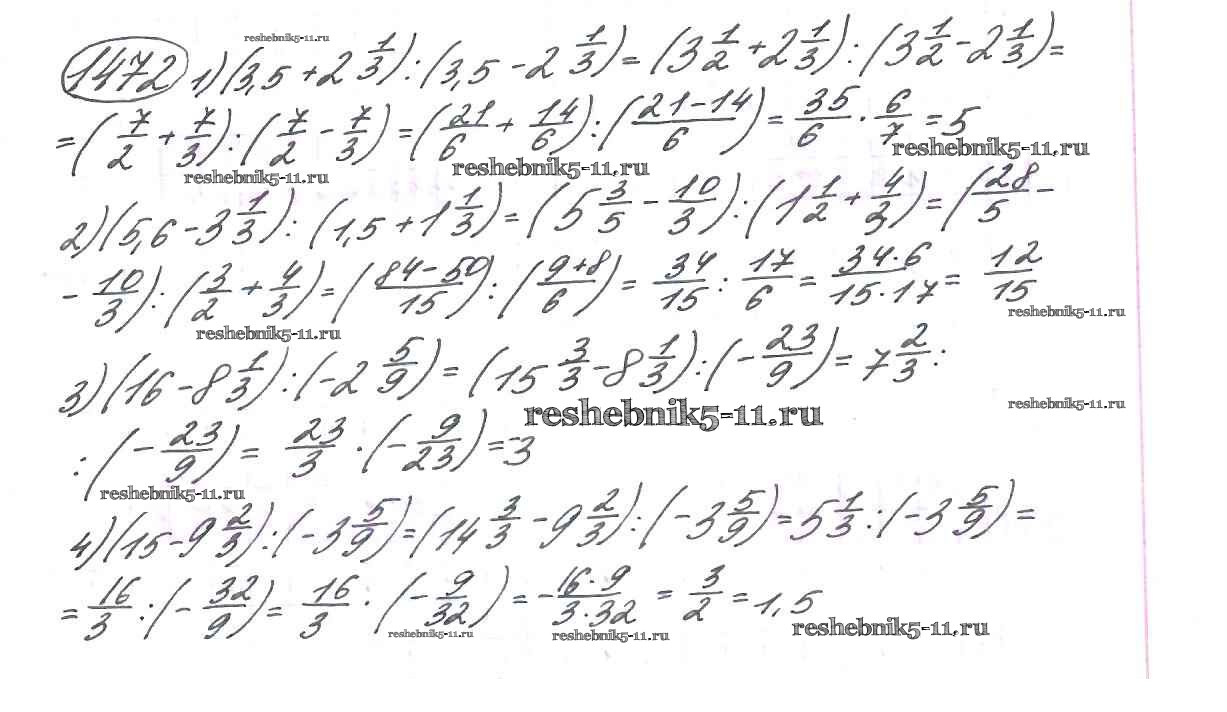 reshebnik5-11.ru
1472 1) (3,5 + 2 1/3) : (3,5 - 2 1/3) = (3 1/2 + 2 1/3) : (3 1/2 - 2 1/3) =
= (7/2 + 7/3) : (7/2 - 7/3) = (21/6 + 14/6) : (21-14/6) = 35/6 · 6/7 = 5
reshebnik5-11.ru reshebnik5-11.ru reshebnik5-11.ru
2) (5,6 - 3 1/3) : (1,5 + 1 1/3) = (5 3/5 - 10/3) : (1 1/2 + 4/3) = (28/5 -
- 10/3) : (3/2 + 4/3) = (84-50/15) : (9+8/6) = 34/15 : 17/6 = 34·6/15·17 = 12/15
reshebnik5-11.ru reshebnik5-11.ru
3) (16 - 8 1/3) : (-2 5/9) = (15 3/3 - 8 1/3) : (-23/9) = 7 2/3 :
reshebnik5-11.ru reshebnik5-11.ru
: (-23/9) = 23/3 · (-9/23) = -3
reshebnik5-11.ru
4) (15 - 9 2/3) : (-3 5/9) = (14 3/3 - 9 2/3) : (-3 5/9) = 5 1/3 : (-3 5/9) =
= 16/3 : (-32/9) = 16/3 · (-9/32) = -16·9/3·32 = 3/2 = 1,5
reshebnik5-11.ru reshebnik5-11.ru reshebnik5-11.ru